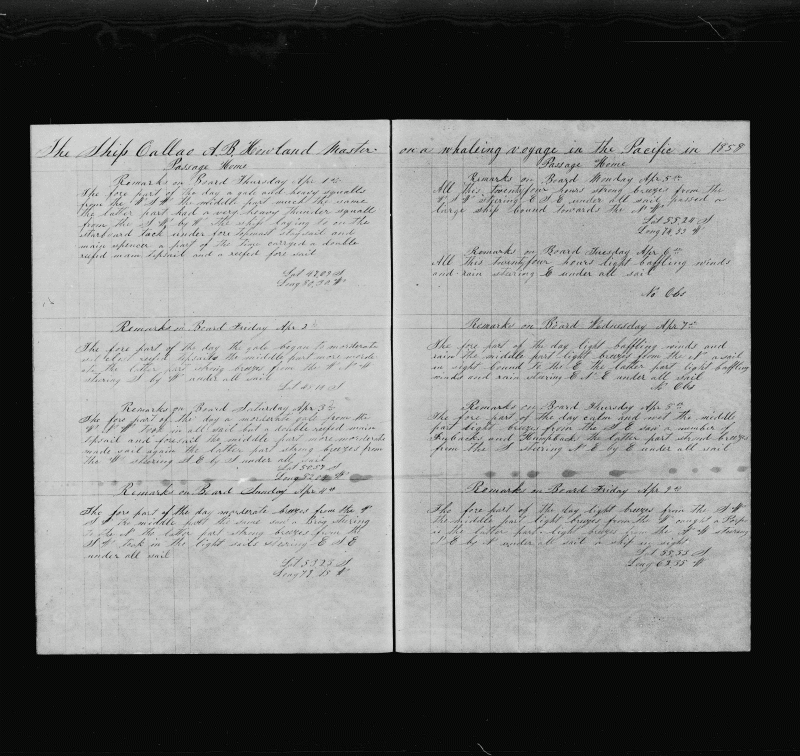 The Ship Callao A. B. Howland Master
Passage Home
Remarks on Board Thursday Apr 1st
The fore part of the day a gale and heavy squalls
from the W S W the middle part much the same
the latter part had a very heavy thunder squall
from the by W the ship laying to on the
starboard tack under fore topmast staysail and
main spencer a part of the time carried a double
reefed main topsail and a reefed fore sail
Lat 47,03 S
Long 80,30 W
Remarks on Board Friday Apr 2
The fore part of the day the gale began to morderate
reefed topsails the middle part more morde
the latter part strong breezes from the W N W
stering S by W under all sail
Lat S
Remarks on Board Saturday Apr 3
The fore part of the day a morderate gale from the
W took in all sail but a double reefed main
topsail and foresail the middle part more morderate
made sail again the latter part strong breezes from
the W stering S E by S under all sail
Lat S
Long W
Remarks on Board Sunday Apr 4th
The fore part of the day morderate breezes from the W
the middle part the same saw a Brig stering
to the N the latter part strong breezes from the
took in the light sails stering E S E
under all sail
Lat 55,25 S
Long W
on a whaleing voyage in the Pacific in 1858
Passage Home
Remarks on Board Monday Apr 5th
All this twentyfour hours strong breezes from the
stering E S E under all sail passed a
large ship bound towards the
Lat 55,24 S
Long 74 33 W
Remarks on Board Tuesday Apr 6th
All This twentyfour hours light baffling winds
and rain stering E under all sail
No Obs
Remarks on Board Wednesday Apr 7th
The fore part of the day light baffling winds and
rain the middle part light breezes from the N a sail
in sight bound to the E the latter part light baffling
winds and rain stering E N E under all sail
No Obs
Remarks on Board Thursday Apr
The fore part of the day calm and wet the middle
part light breezes from the S E saw a number of
and Humpback the latter part strong breezes
from the S stering N E by E under all sail
Remarks on Board Friday Apr 9th
The fore part of the day light breezes from the S W
the middle part light breezes from the W caught a
the latter part light breezes from the stering
E by N under all sail a ship in sight
Lat 55,55 S
Long W